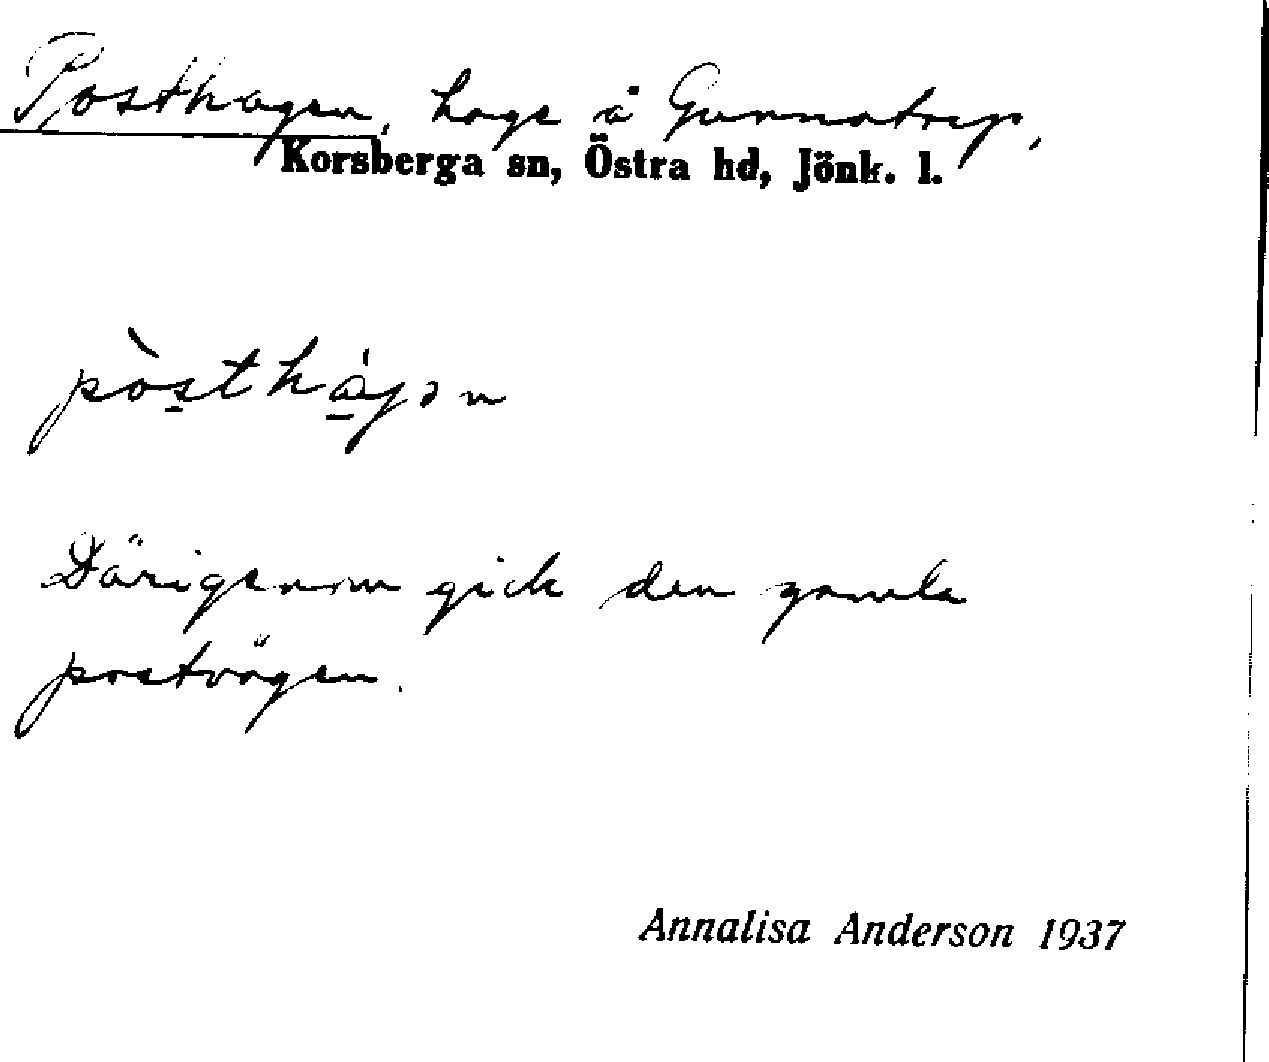 Posthagen, hage å Gunnatorp,
Korsberga sn, Östra hd, Jönk. l.
pòsthágən
Därigenom gick den gamla
postvägen.
Annalisa Anderson 1937